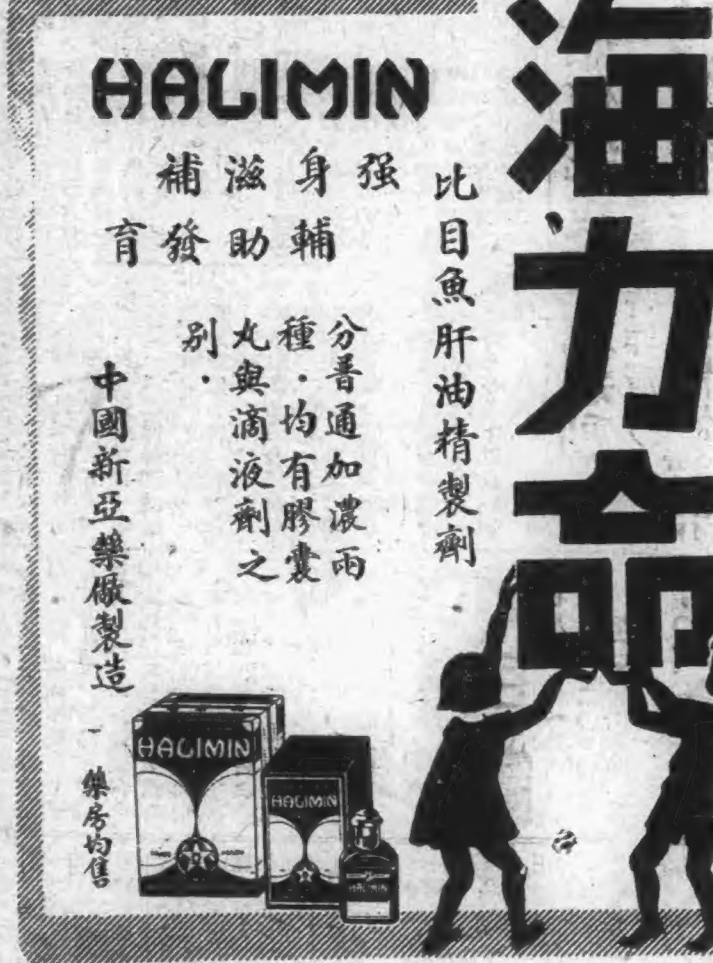 海力命
HALIMIN
比目魚肝油精製劑
强身滋補
輔助發育
分普通加濃兩
種．均有膠囊
丸與滴液劑之
別．
中國新亞藥厰製造
藥房均售
HALIMIN
HALIMIN
HALIMIN